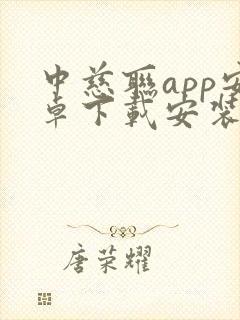 中慈聯app安
卓下載安装
唐荣耀